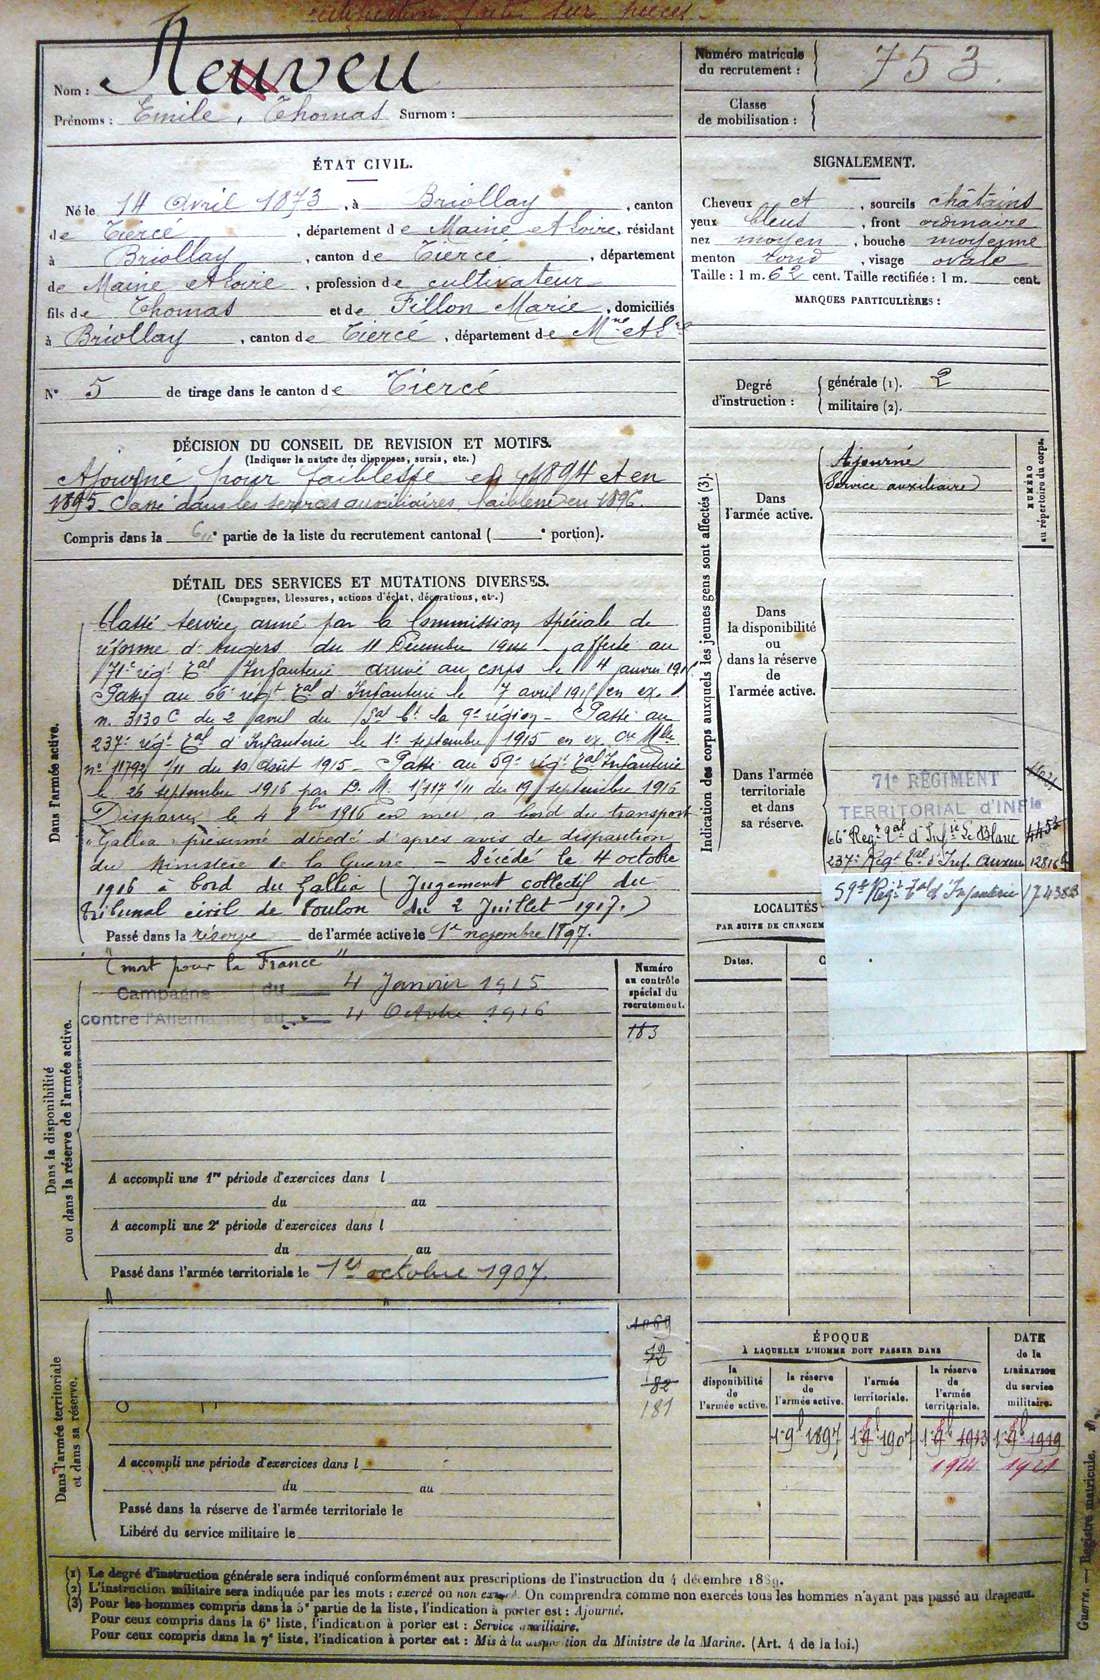 rectification faite sur pièces.
Nom : Neuveu
Prénoms : Emile, Thomas Surnom :
Numéro matricule du recrutement : 753.
Classe de mobilisation :
ÉTAT CIVIL.
Né le 14 avril 1873, à Briollay, canton
de Tiercé, département de Maine et Loire, résidant
à Briollay, canton de Tiercé, département
de Maine et Loire, profession de cultivateur
fils de Thomas et de Fillon Marie, domiciliés
à Briollay, canton de Tiercé, département de Mne et Lre
N° 5 de tirage dans le canton de Tiercé
SIGNALEMENT.
Cheveux et, sourcils châtains
yeux bleus, front ordinaire
nez moyen, bouche moyenne
menton rond, visage ovale
Taille : 1 m. 62 cent. Taille rectifiée : 1 m. cent.
MARQUES PARTICULIÈRES :
Degré d'instruction :
générale (1). 2
militaire (2).
DÉCISION DU CONSEIL DE REVISION ET MOTIFS.
(Indiquer la nature des dispenses, sursis, etc.)
Ajourné pour faiblesse en 1894 et en
1895 Classé dans les services auxiliaires, faiblesse en 1896.
Compris dans la 6e partie de la liste du recrutement cantonal ( e portion).
DÉTAIL DES SERVICES ET MUTATIONS DIVERSES.
(Campagnes, blessures, actions d'éclat, décorations, etc.)
Dans l'armée active.
Classé service armé par la Commission spéciale de
réforme d'Angers du 11 Décembre 1914 affecté au
71e régt Tal Infanterie arrivé au corps le 4 janvier 1915
Passé au 66e régt Tal d'Infanterie le 7 avril 1915 en ex.
n. 3130 C du 2 avril du Gal Ct la 9e région - Passé au
237e régt Tal d'Infanterie le 1er septembre 1915 en ex. Cre Mlle
n° 11792 1/11 du 10 Août 1915 - Passé au 59e régt Tal Infanterie
le 26 septembre 1916 par D.M. 15117 1/11 du 19 septembre 1916
Disparu le 4 8bre 1916 en mer, à bord du transport
"Gallia" présumé décédé d'après avis de disparition
du Ministère de la Guerre - Décédé le 4 octobre
1916 à bord du Gallia (Jugement collectif du
Tribunal civil de Toulon du 2 Juillet 1917.)
Passé dans la réserve de l'armée active le 1er novembre 1897.
"mort pour la France"
Campagne du 4 Janvier 1915
contre l'Allem au 4 Octobre 1916
Numéro au contrôle spécial du recrutement.
183
Dans la disponibilité ou dans la réserve de l'armée active.
A accompli une 1re période d'exercices dans l
du au
A accompli une 2e période d'exercices dans l
du au
Passé dans l'armée territoriale le 1er octobre 1907.
Dans l'armée territoriale et dans sa réserve.
1069
182
181
A accompli une période d'exercices dans l
du au
Passé dans la réserve de l'armée territoriale le
Libéré du service militaire le
Indication des corps auxquels les jeunes gens sont affectés (3).
NUMÉRO au répertoire du corps.
Dans l'armée active.
Ajourné
Service auxiliaire
Dans la disponibilité ou dans la réserve de l'armée active.
Dans l'armée territoriale et dans sa réserve.
71e RÉGIMENT
TERRITORIAL d'INFie
66e Regt Tal d'Infie Le Blanc 4453
237e Regt Tal d'Inf. 12816
59e Regt Tal d'Infanterie 17438B
LOCALITÉS
PAR SUITE DE CHANGEM
Dates.
C
ÉPOQUE
À LAQUELLE L'HOMME DOIT PASSER DANS
la disponibilité de l'armée active.
la réserve de l'armée active.
l'armée territoriale.
la réserve de l'armée territoriale.
DATE de la LIBÉRATION du service militaire.
1 9b 1897 1 9b 1907 1 9b 1913 1 9b 1919
1914 1921
(1) Le degré d'instruction générale sera indiqué conformément aux prescriptions de l'instruction du 4 décembre 1889.
(2) L'instruction militaire sera indiquée par les mots : exercé ou non exercé. On comprendra comme non exercés tous les hommes n'ayant pas passé au drapeau.
(3) Pour les hommes compris dans la 5e partie de la liste, l'indication à porter est : Ajourné.
Pour ceux compris dans la 6e liste, l'indication à porter est : Service auxiliaire.
Pour ceux compris dans la 7e liste, l'indication à porter est : Mis à la disposition du Ministre de la Marine. (Art. 4 de la loi.)
Guerre. — Registre matricule.